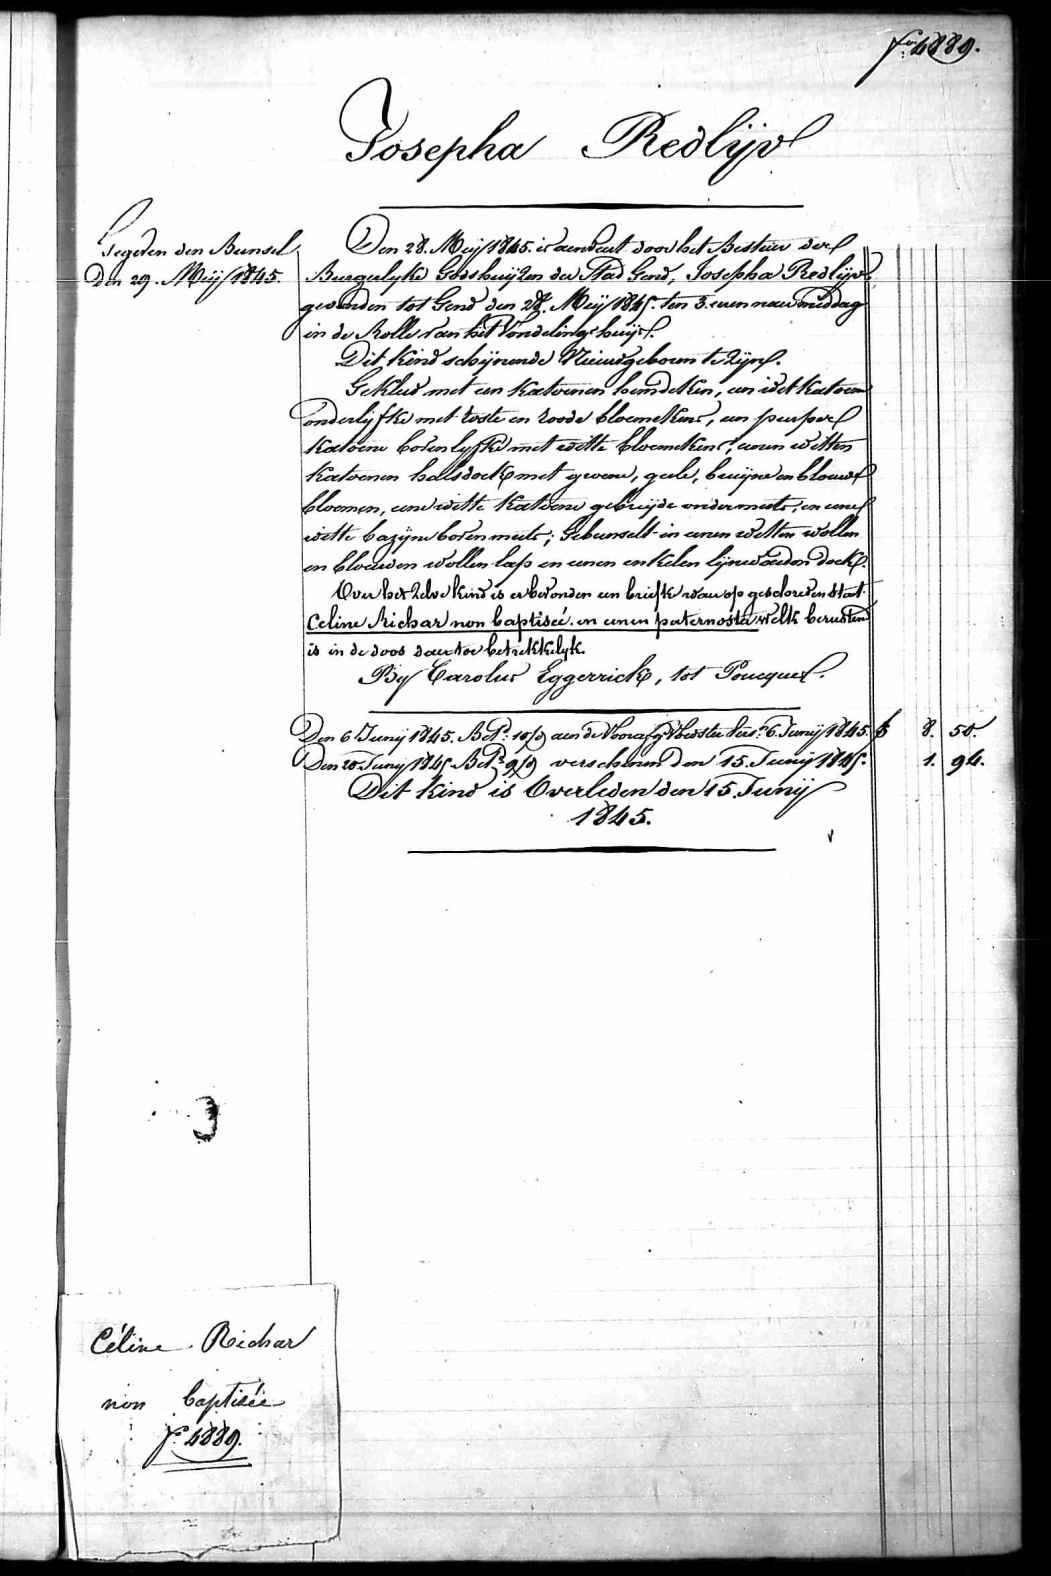 fo. 4889.
Josepha Redlijv
Gegeven den Bunsel
Den 29. Meij 1845.
Den 28. Meij 1845. is aenveert door het Bestuer der
Burgerlyke Godshuijzen der Stad Gend, Josepha Redlijv
gevonden tot Gend den 28. Meij 1845. ten 3. uren naer middag
in de Rolle van het Vondelingshuijs.
Dit kind schijnende Nieuwgeboren te zijn.
Gekleed met een katoenen hemdeken, een wit katoen
onderlyfke met roste en roode bloemekens, een purper
katoene bovenlyfke met witte bloemekens, eenen witten
katoenen halsdoek met groene, geele, bruijne en blauwe
bloemen, eene witte katoene gebreijde ondermuts, en eene
witte bazijne bovenmuts; Gebunselt in eenen witten wollen
en blauwen wollen lap en eenen enkelen lijnwaeden doek.
Over het zelve kind is er bevonden een briefke waer op geschreven staet
Celine Richar non baptiseé. en eenen paternoster welk berusten
is in de doos daer toe betrekkelyk.
By Carolus Eggerrick, tot Poucques.
Den 6 Junij 1845. Bet. 10/9 aen de Voorzg Voedster 6. Junij 1845. f 8. 50.
Den 20 Junij 1845 Bet. 9/9 verschenen den 15. Junij 1845. 1. 94.
Dit kind is Overleden den 15. Junij
1845.
Céline Richar
non baptisée
fo. 4889.